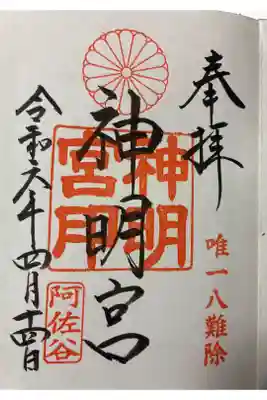 奉拝
唯一八難除
神明宮
神明宮
阿佐谷
令和六年四月十四日